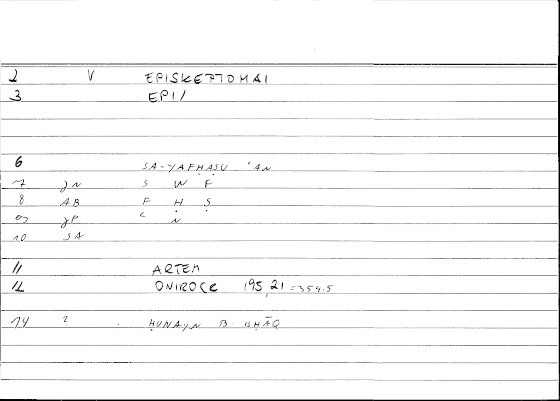 2 V EPISKEPTOMAI
3 EPI/
6 SA-YAFḤAṢU ʿAN
7 JN S W F
8 AB F Ḥ Ṣ
9 JP ʿ N
10 SA
11 ARTEM
12 ONIROCR 195,21 =354.5
14 ? ḤUNAYN B. ISḤĀQ